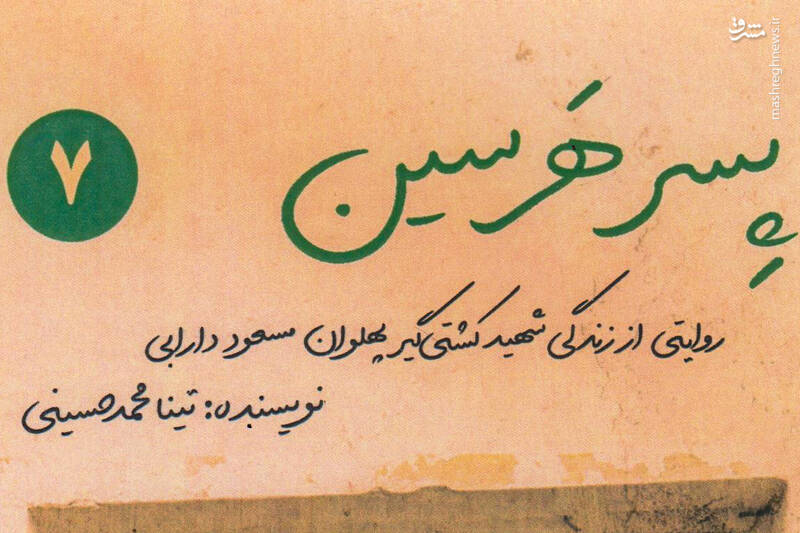 مشرق
mashreghnews.ir
۷
پسر هَرسین
روایتی از زندگی شهید کشتی‌گیر پهلوان مسعود دارابی
نویسنده: تینا محمدحسینی